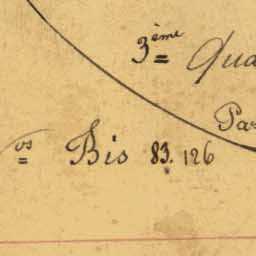 3ème Qua
Par
os Bis 83. 126